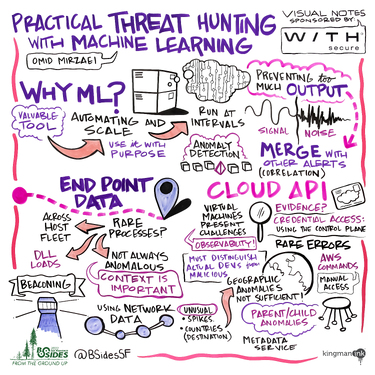 PRACTICAL THREAT HUNTING
WITH MACHINE LEARNING
OMID MIRZAEI
VISUAL NOTES
SPONSORED BY:
WITH
secure
WHY ML?
VALUABLE
TOOL
AUTOMATING AND
SCALE
USE IT WITH
PURPOSE
RUN AT
INTERVALS
ANOMALY
DETECTION
PREVENTING too
MUCH OUTPUT
SIGNAL
NOISE
MERGE WITH
OTHER ALERTS
(CORRELATION)
END POINT
DATA
ACROSS
HOST
FLEET
RARE
PROCESSES?
DLL
LOADS
NOT ALWAYS
ANOMALOUS
CONTEXT IS
IMPORTANT
BEACONING
USING NETWORK
DATA
UNUSUAL
• SPIKES
• COUNTRIES
(DESTINATION)
CLOUD API
VIRTUAL
MACHINES
PRESENT
CHALLENGES
OBSERVABILITY!
MUST DISTINGUISH
ACTUAL DEVS from
MALICIOUS
EVIDENCE?
CREDENTIAL ACCESS:
USING THE CONTROL PLANE
RARE ERRORS
GEOGRAPHIC
ANOMALIES
NOT SUFFICIENT!
AWS
COMMANDS
MANUAL
ACCESS
PARENT/CHILD
ANOMALIES
METADATA
SERVICE
BSIDES
FROM THE GROUND UP
@BSidesSF
kingmanink